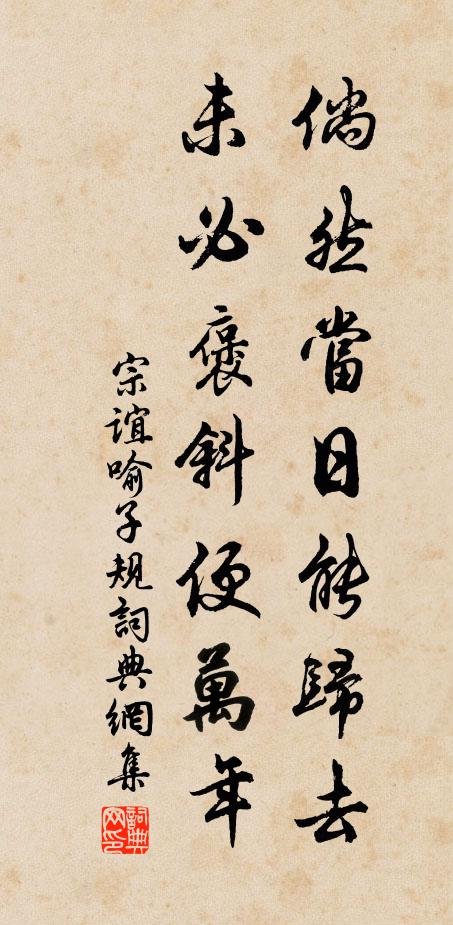 倘然當日能歸去
未必褒斜便萬年
宗誼喻子規詞典網集
詞典网印